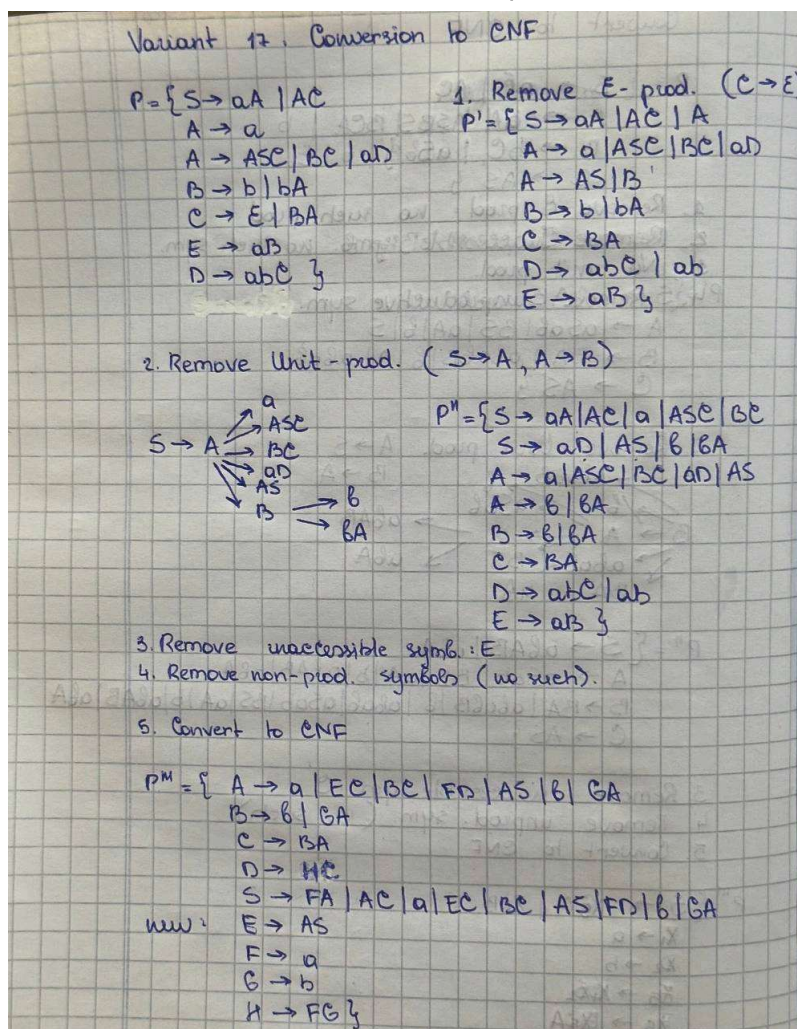 Variant 17. Conversion to CNF
P={ S→ aA | AC
A → a
A → ASC | BC | aD
B → b | bA
C → E | BA
E → aB
D → abC }
1. Remove E-prod. (C→E)
P'={ S→ aA | AC | A
A → a | ASC | BC | aD
A → AS | B
B → b | bA
C → BA
D → abC | ab
E → aB }
2. Remove Unit-prod. ( S→A, A→B)
S → A → a
→ ASC
→ BC
→ aD
→ AS
→ B → b
→ bA
P"={ S → aA | AC | a | ASC | BC
S → aD | AS | b | bA
A → a | ASC | BC | aD | AS
A → b | bA
B → b | bA
C → BA
D → abC | ab
E → aB }
3. Remove inaccessible symb. : E
4. Remove non-prod. symbols (no such).
5. Convert to CNF
P''' = { A → a | EC | BC | FD | AS | b | GA
B → b | GA
C → BA
D → HC
S → FA | AC | a | EC | BC | AS | FD | b | GA
new: E → AS
F → a
G → b
H → FG }